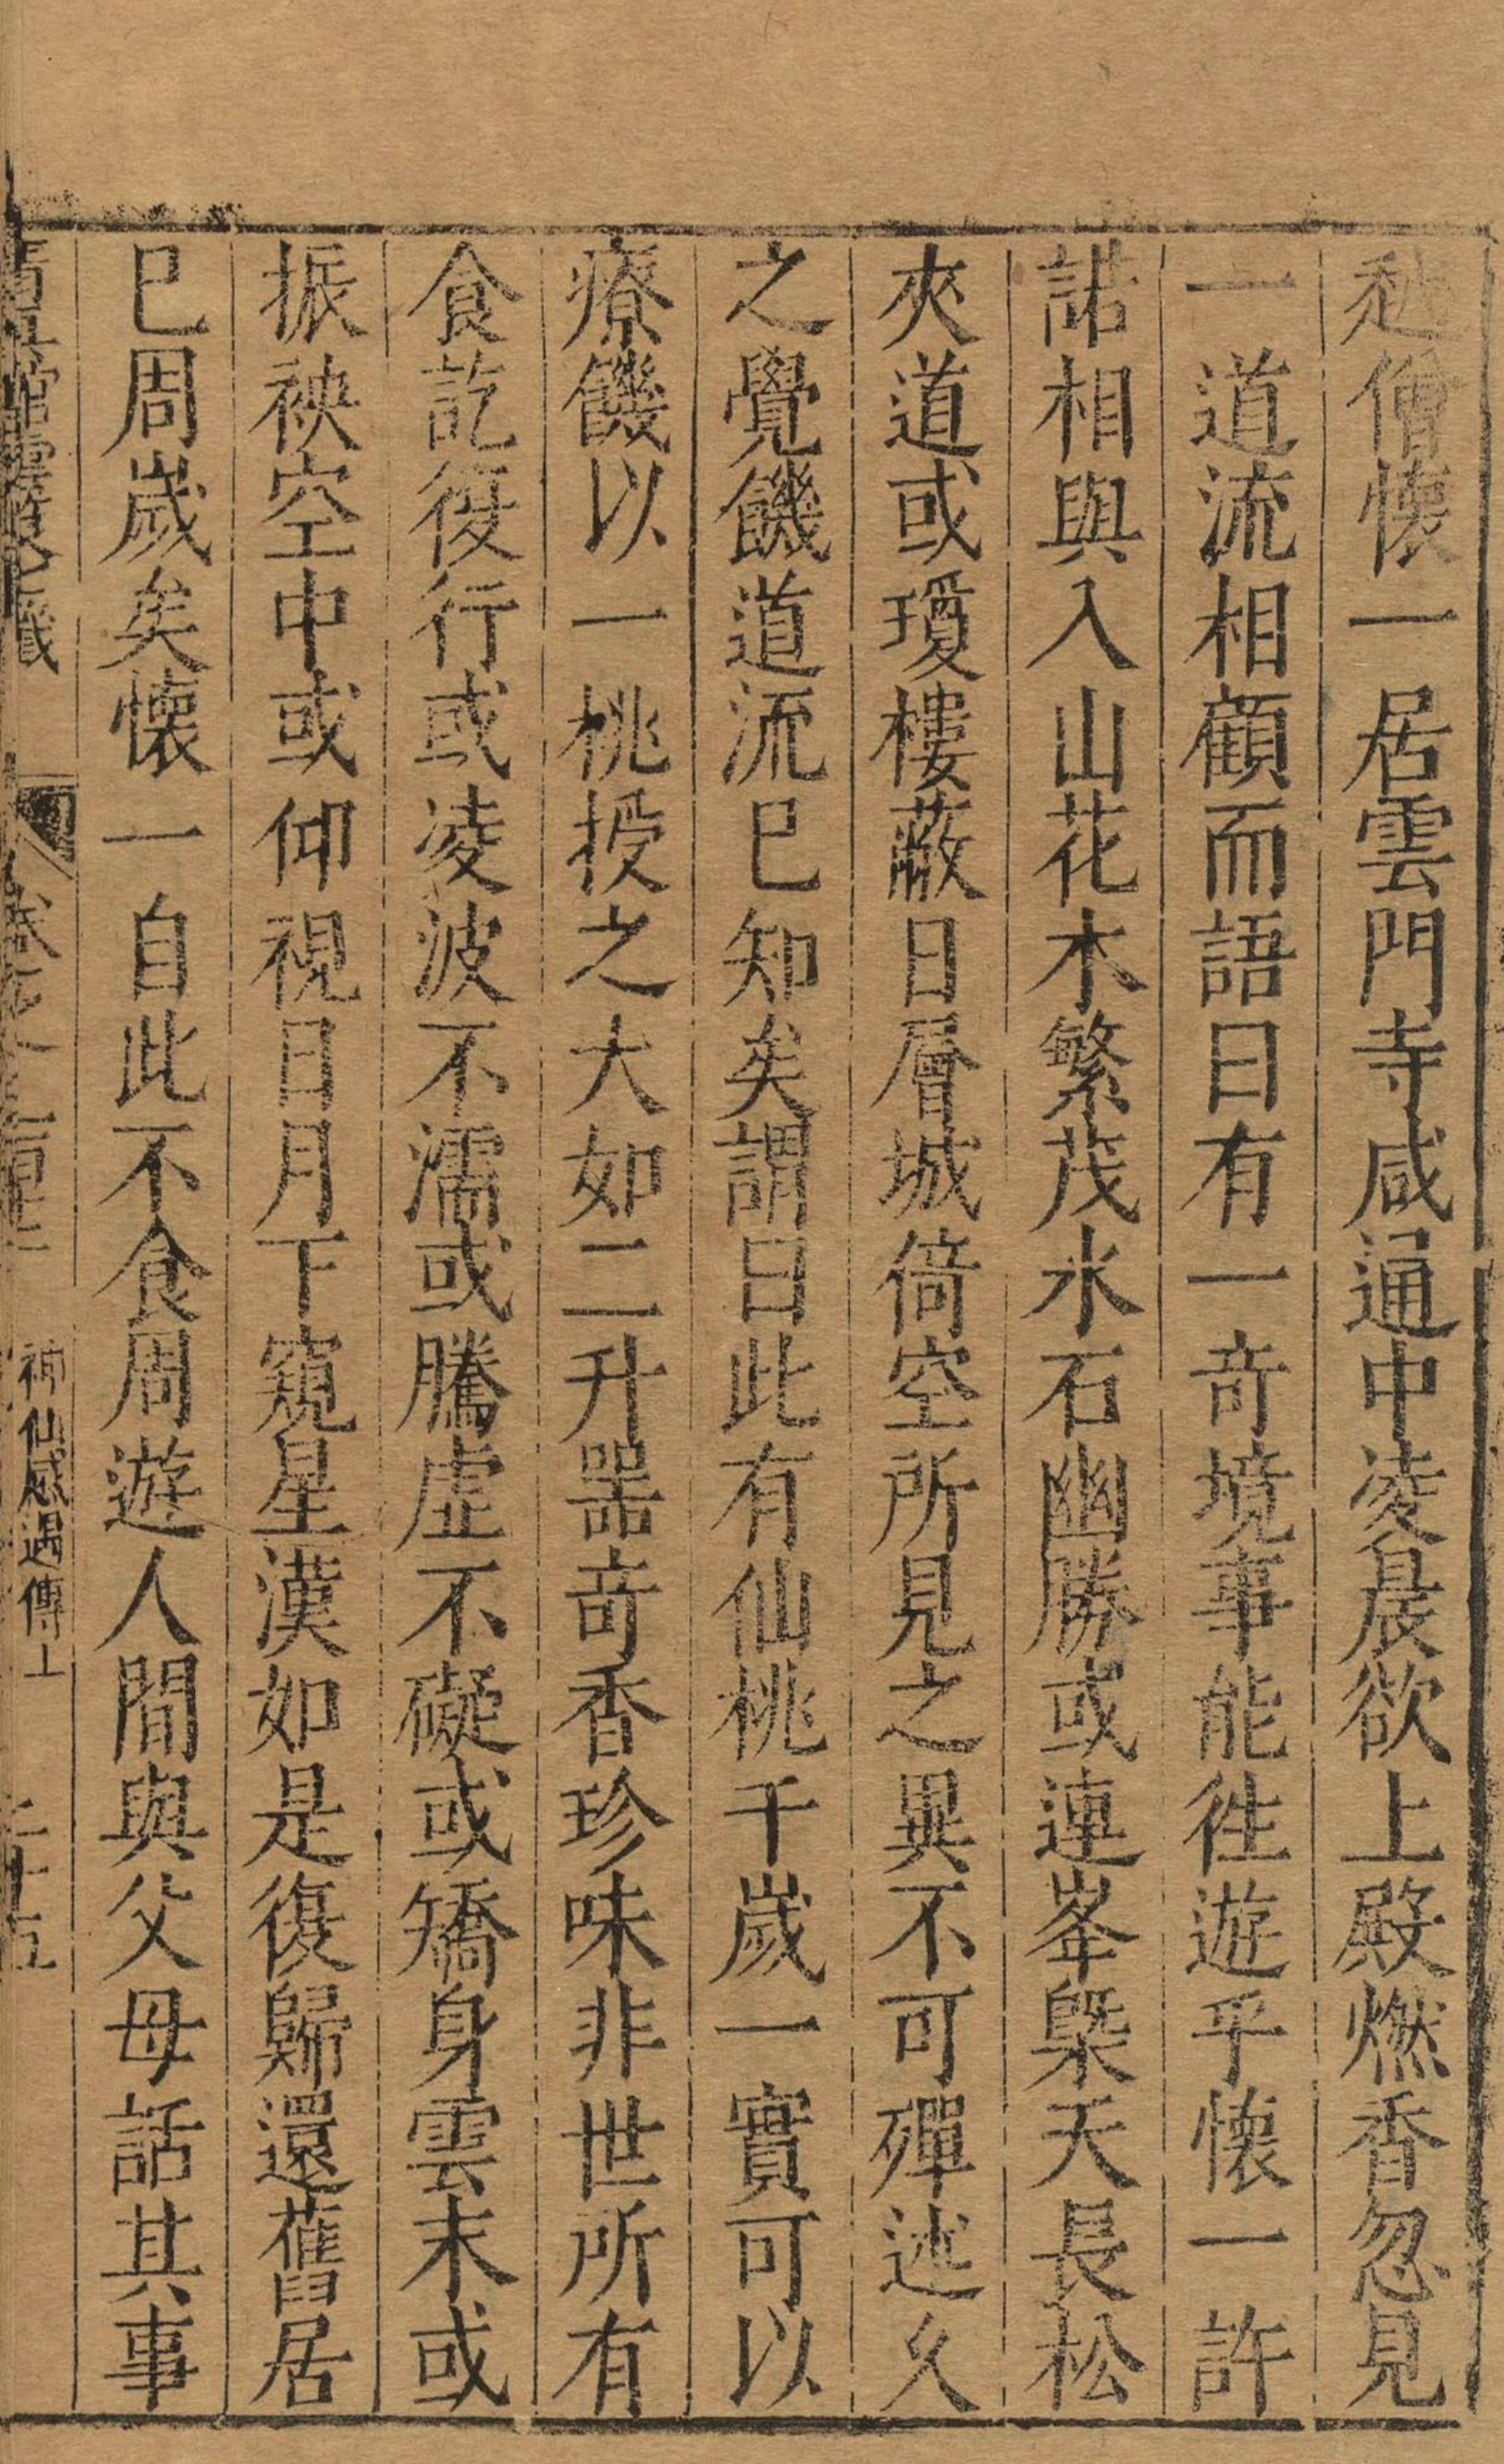 越僧懷一居雲門寺咸通中凌晨欲上殿燃香忽見
一道流相顧而語曰有一竒境事能徃遊乎懷一許
諾相與入山花木繁茂水石幽勝或連峯槩天長松
夾道或瓊樓蔽日層城倚空所見之異不可殫述久
之覺饑道流巳知矣謂曰此有仙桃千歲一實可以
療饑以一桃授之大如二升器竒香珍味非世所有
食訖復行或凌波不濡或騰虛不礙或矯身雲末或
振袂空中或仰視日月下窺星漢如是復歸還舊居
巳周歲矣懷一自此不食周遊人間與父母話其事
卷之一百十二
神仙感遇傳上
二十五